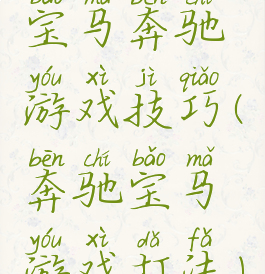 bǎo mǎ bēn chí
宝马奔驰
yóu xì jì qiǎo
游戏技巧(
bēn chí bǎo mǎ
奔驰宝马
yóu xì dǎ fǎ
游戏打法)